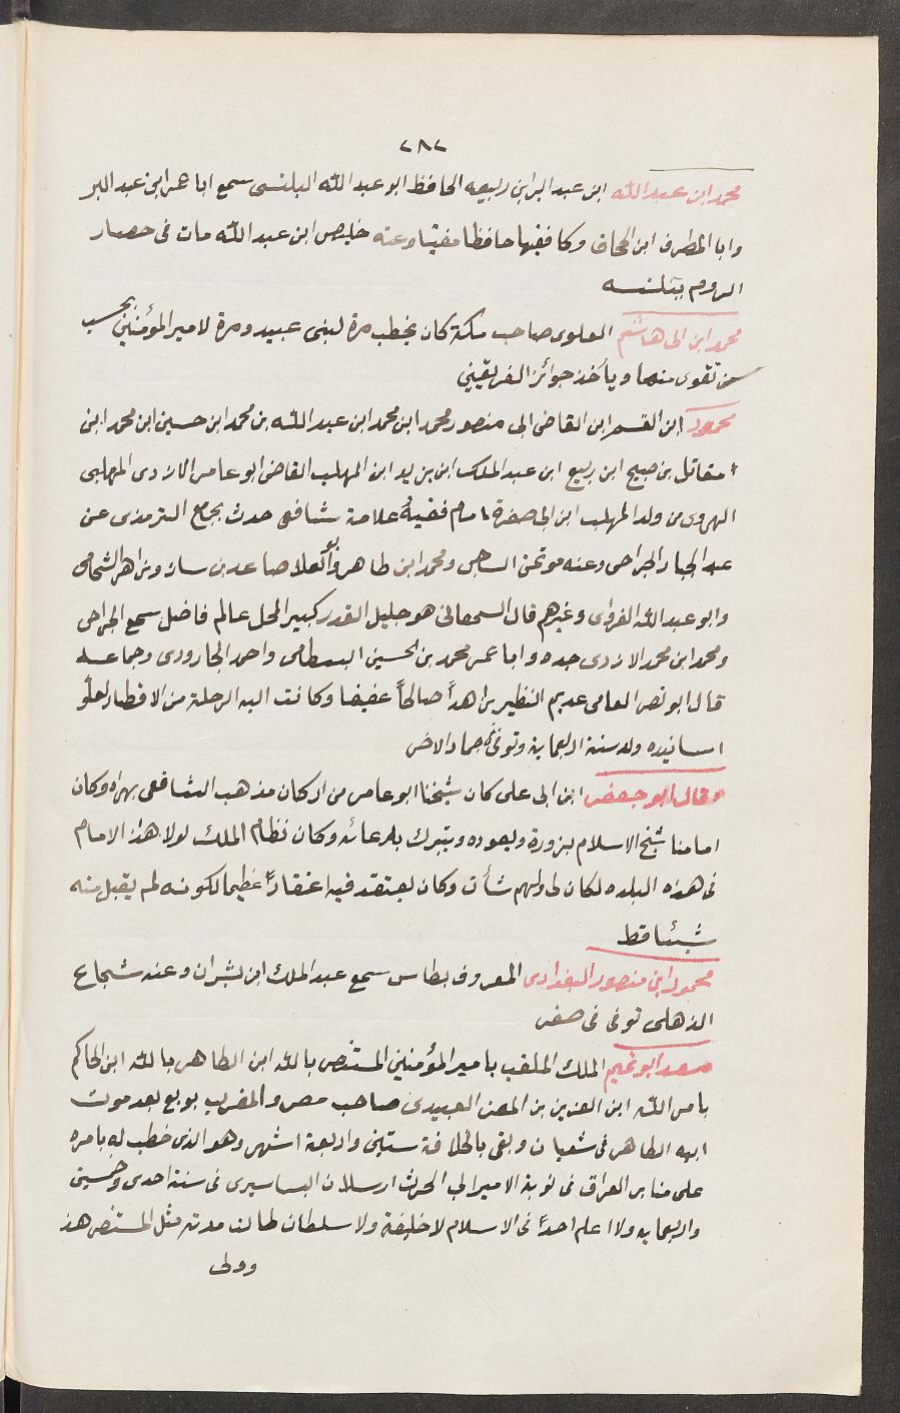 ٢٨٢
محمد ابن عبد الله ابن عبد البر ابن ربيعه الحافظ ابو عبد الله البلنسى سمع ابا عمر ابن عبد البر
وابا المطرف ابن الجحاف وكا فقيها حافظا مفتيا وعنه خليص ابن عبد الله مات فى حصار
الروم بلنسه
محمد ابن ابى هاشم العلوى صاحب مكة كان يخطب مرة لبنى عبيد ومرة لامير المؤمنين بحسب
من تقوى منهما ويأخذ جوائز الفريقين
محمود ابن القسم ابن القاضى ابى منصور محمد ابن محمد ابن عبد الله بن محمد ابن حسين ابن محمد ابن
مقاتل بن صبيح ابن ربيع ابن عبد الملك ابن يزيد ابن المهلب القاضى ابو عامر الازدى المهلبى
الهروى من ولد المهلب ابن ابى صفرة امام فقيهٌ علامة شافعى حدث بجامع الترمذى عن
عبد الجبار الجراحى وعنه موتمن الساجى ومحمد ابن طاهر وابو العلا صاعد بن سار وزاهر الشحامى
وابو عبد الله الفراوى وغيرهم قال السمعانى هو جليل القدر كبير المحل عالم فاضل سمع الجراحى
ومحمد ابن محمد الازدى جده وابا عمر محمد بن الحسين البسطامى واحمد الجارودى وجماعه
قال ابو نصر العامى عديم النظير زاهداً صالحاً عفيفا وكانت اليه الرحلة من الاقطار لعلو
اسانيده ولد سنة اربعماية وتوفى فى جماد الاخر
وقال ابو جعفر ابن ابى على كان شيخنا ابو عامر من اركان مذهب الشافعى بهراه وكان
امامنا شيخ الاسلام يزوره ويعوده ويتبرك بدعائه وكان نظام الملك لولا هذا الامام
فى هذه البلده لكان لى ولهم شأن وكان يعتقد فيه اعتقاداً عظيما لكونه لم يقبل منه
شيئا قط
محمود ابن منصور البغدادى المعروف بطاس سمع عبد الملك ابن بشران وعنه شجاع
الذهلى توفى فى صفر
معد ابو تميم الملك الملقب بامير المؤمنين المستنصر بالله ابن الظاهر بالله ابن الحاكم
بامر الله ابن العزيز بن المعز العبيدى صاحب مصر والمغرب بويع بعد موت
ابيه الظاهر فى شعبان وبقى بالخلافة ستين واربعة اشهر وهو الذى خطب له بامره
على منابر العراق فى نوبة الامير ابى الحرث ارسلان البساسيرى فى سنة احدى وخمسين
واربعمايه ولا اعلم احداً فى الاسلام لا خليفة ولا سلطان طالت مدته مثل المستنصر هذ
وولى